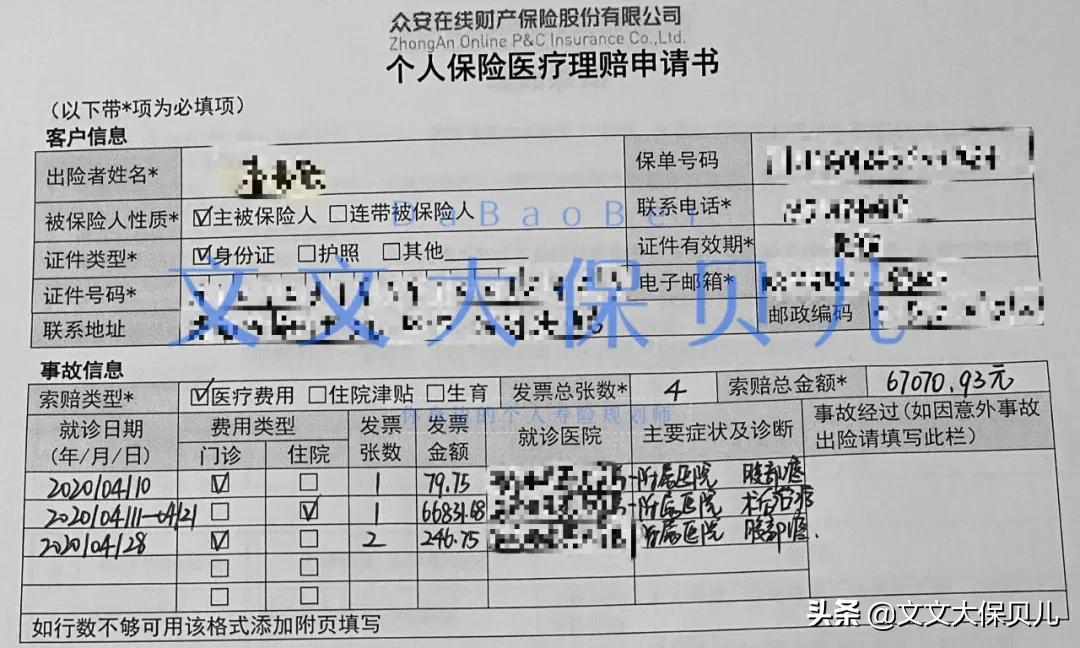 众安在线财产保险股份有限公司
ZhongAn Online P&C Insurance Co.,Ltd.
个人保险医疗理赔申请书
（以下带*项为必填项）
客户信息
出险者姓名* 保单号码
被保险人性质* ☑主被保险人 □连带被保险人 联系电话*
DaBaoBei
证件类型* ☑身份证 □护照 □其他 证件有效期*
证件号码* 电子邮箱*
文文大保贝儿
联系地址 邮政编码
事故信息
索赔类型* ☑医疗费用 □住院津贴 □生育 发票总张数* 4 索赔总金额* 67070.93元
的个人寿险规划师
就诊日期（年/月/日） 费用类型 门诊 住院 发票张数 发票金额 就诊医院 主要症状及诊断 事故经过（如因意外事故出险请填写此栏）
2020/04/10 ☑ □ 1 79.75 附属医院 腹部
2020/04/11-04/21 □ ☑ 1 66831.68 附属医院
2020/04/28 ☑ □ 2 246.75 附属医院 腹部
□ □
□ □
如行数不够可用该格式添加附页填写
头条 @文文大保贝儿